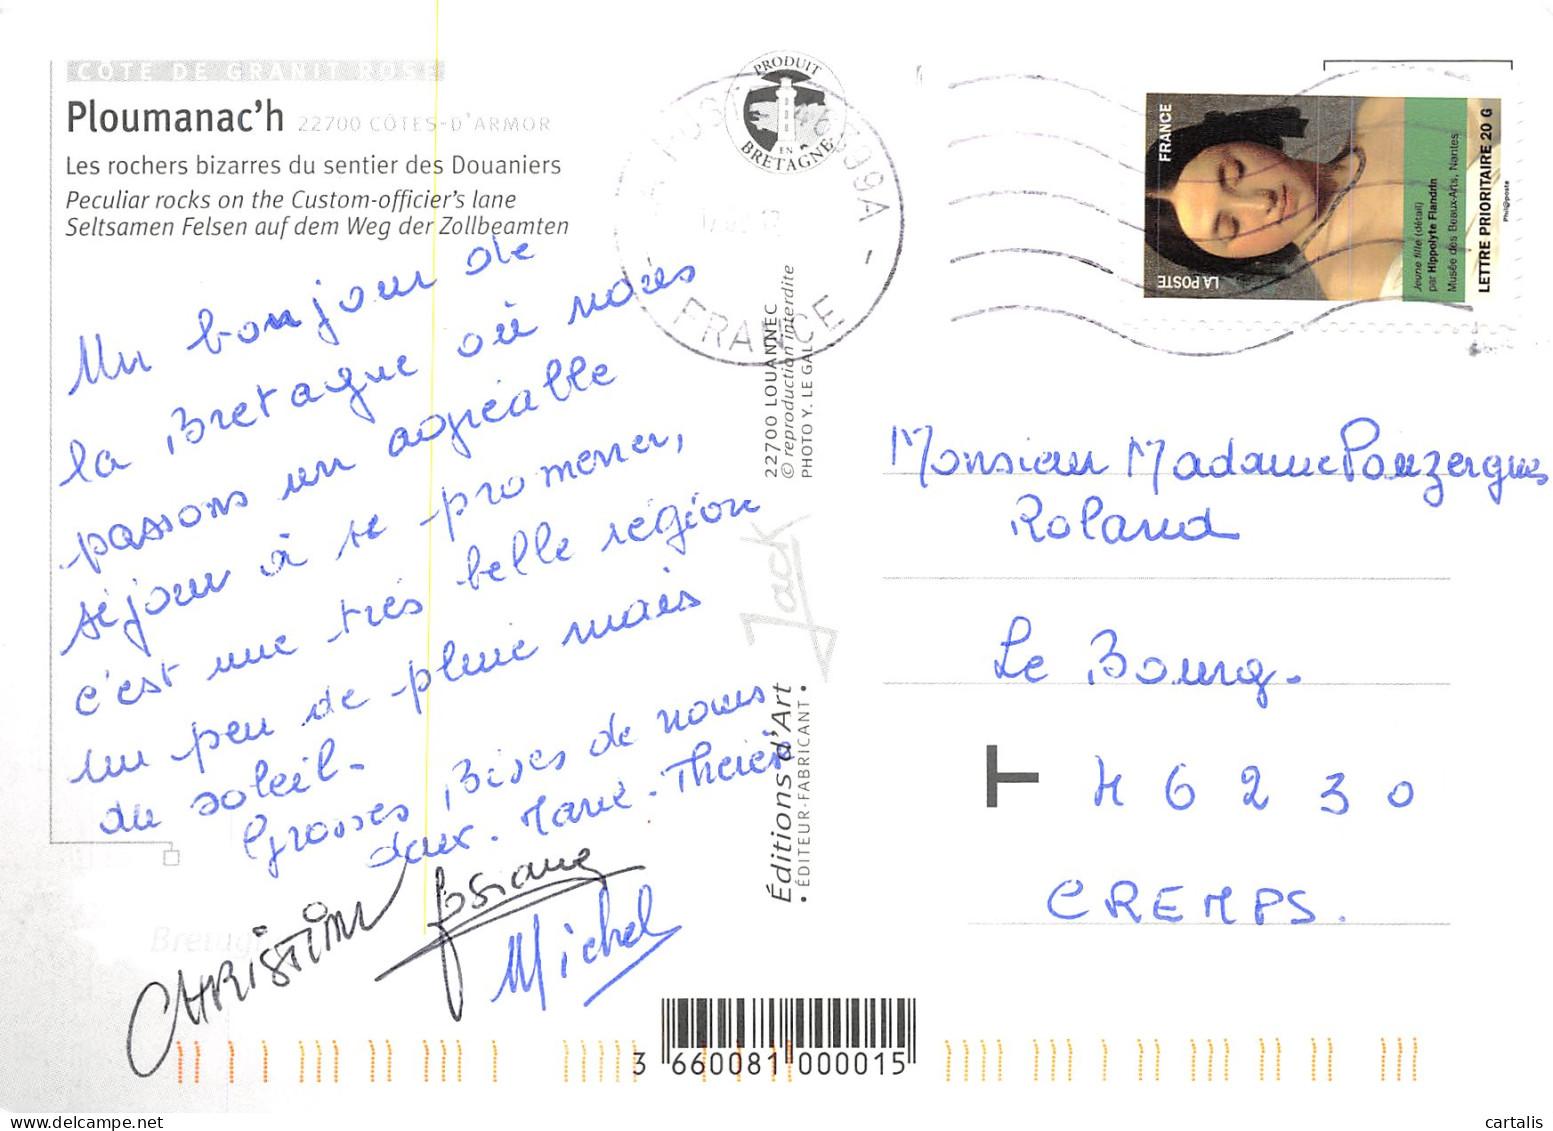 CÔTE DE GRANIT ROSE
Ploumanac'h 22700 CÔTES-D'ARMOR
Les rochers bizarres du sentier des Douaniers
Peculiar rocks on the Custom-officier's lane
Seltsamen Felsen auf dem Weg der Zollbeamten
Un bonjour de
la Bretagne où nous
passons un agréable
séjour à se promener,
c'est une très belle région
un peu de pluie mais
du soleil.
Grosses Bises de nous
deux. Marie-Thérèse
CHRISTIAN Josiane
Michel
PRODUIT
EN
BRETAGNE
46399A -
FRANCE
22700 LOUANNEC
© reproduction interdite
PHOTO Y. LE GAL
Jack
Éditions d'Art
• ÉDITEUR-FABRICANT •
FRANCE
LA POSTE
Jeune fille (détail)
par Hippolyte Flandrin
Musée des Beaux-Arts, Nantes
LETTRE PRIORITAIRE 20 G
Phil@poste
Monsieur Madame Pouzergues
Roland
Le Bourg.
T 46230
CREMPS.
Bretag
3 660081 000015
cartalis